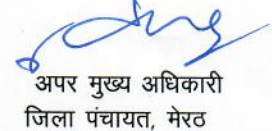 अपर मुख्य अधिकारी
जिला पंचायत, मेरठ